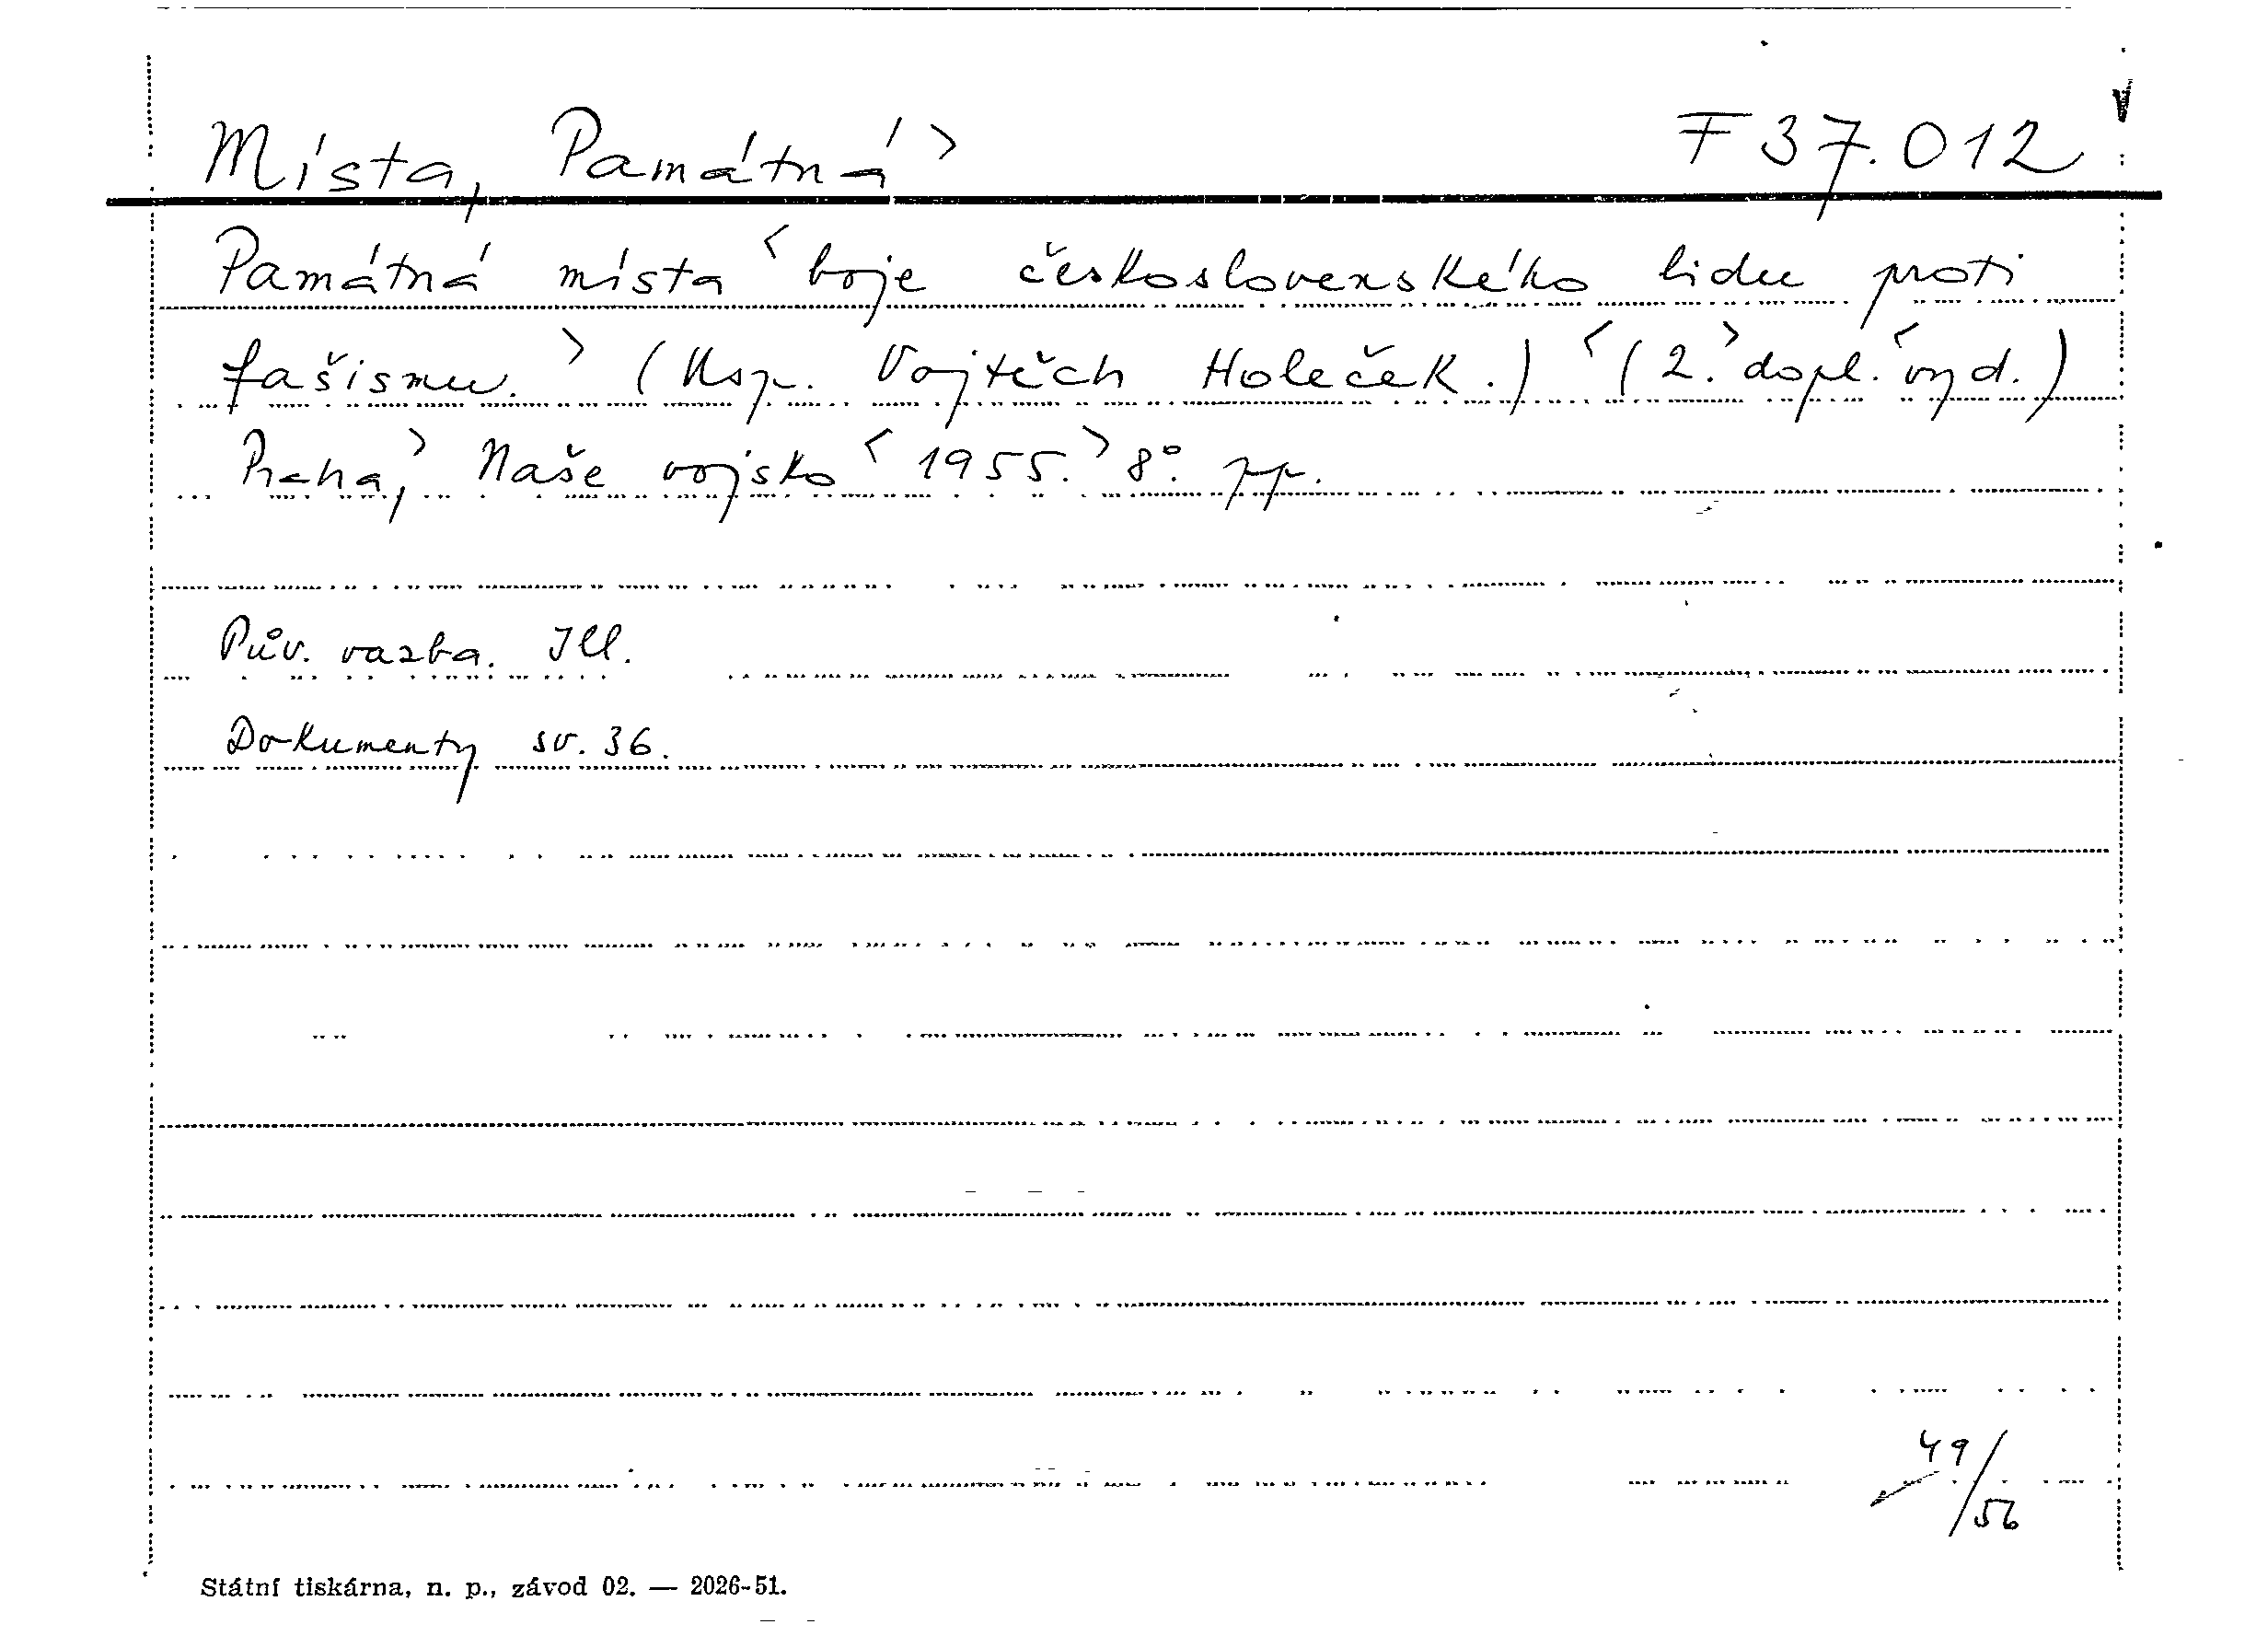 Místa, Památná > F 37.012
Památná místa < boje československého lidu proti
fašismu. > (Usp. Vojtěch Holeček.) < (2. > dopl. < vyd.)
Praha, > Naše vojsko < 1955. > 8°. pp.
Pův. vazba. Ill.
Dokumenty sv. 36.
49/56
Státní tiskárna, n. p., závod 02. — 2026-51.